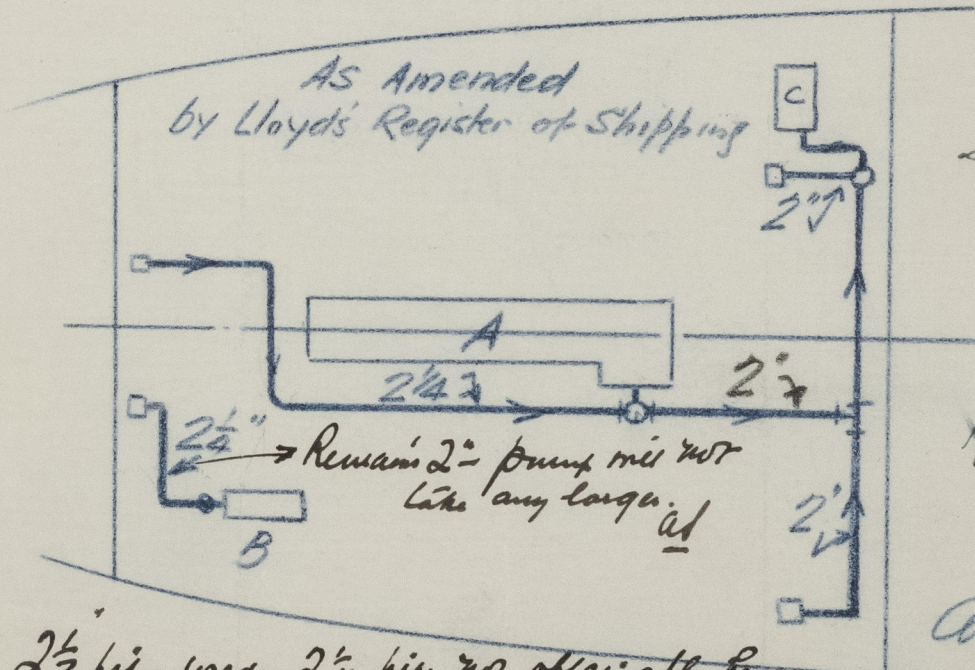 As Amended
by Lloyd's Register of Shipping
C
2"
A
2¼
2"
2¼"
Remain 2" pump will not
take any larger.
B
2"
2½